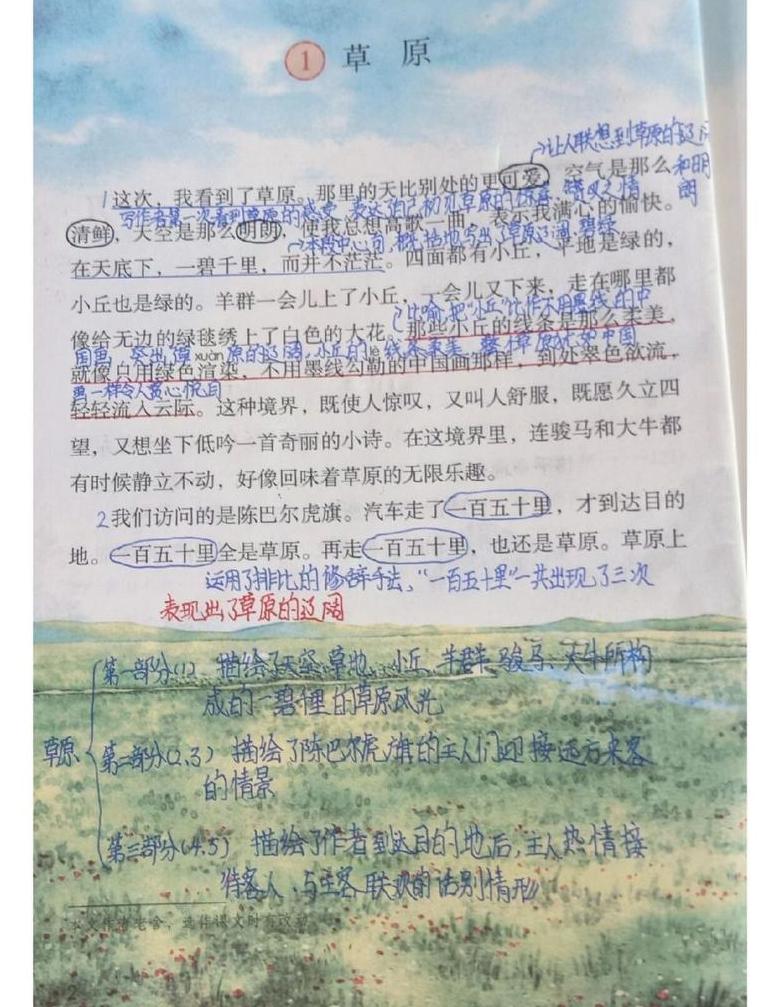 1 草 原
让人联想到草原的辽阔
和明朗
1这次，我看到了草原。那里的天比别处的更可爱，空气是那么
写作者第一次看到草原的感受，表达了自己初见草原的惊喜、赞叹之情
清鲜，天空是那么明朗，使我总想高歌一曲，表示我满心的愉快。
本段中心句，概括地写出了草原辽阔、碧绿
在天底下，一碧千里，而并不茫茫。四面都有小丘，平地是绿的，
小丘也是绿的。羊群一会儿上了小丘，一会儿又下来，走在哪里都
比喻，把“小丘”比作不用墨线的中
像给无边的绿毯绣上了白色的大花。那些小丘的线条是那么柔美，
国画，突出草原的辽阔，小丘的线条柔美，整个草原犹如中国
xuàn lè
就像只用绿色渲染，不用墨线勾勒的中国画那样，到处翠色欲流，
画一样令人赏心悦目
轻轻流入云际。这种境界，既使人惊叹，又叫人舒服，既愿久立四
望，又想坐下低吟一首奇丽的小诗。在这境界里，连骏马和大牛都
有时候静立不动，好像回味着草原的无限乐趣。
2我们访问的是陈巴尔虎旗。汽车走了一百五十里，才到达目的
地。一百五十里全是草原。再走一百五十里，也还是草原。草原上
运用了排比的修辞手法，“一百五十里”一共出现了三次
表现出了草原的辽阔
草原
第一部分(1) 描绘了天空、草地、小丘、羊群、骏马、大牛所构
成的一碧千里的草原风光
第二部分(2、3) 描绘了陈巴尔虎旗的主人们迎接远方来客
的情景
第三部分(4、5) 描绘了作者到达目的地后，主人热情接
待客人、与主客联欢的话别情形
本文作者老舍，选作课文时有改动。